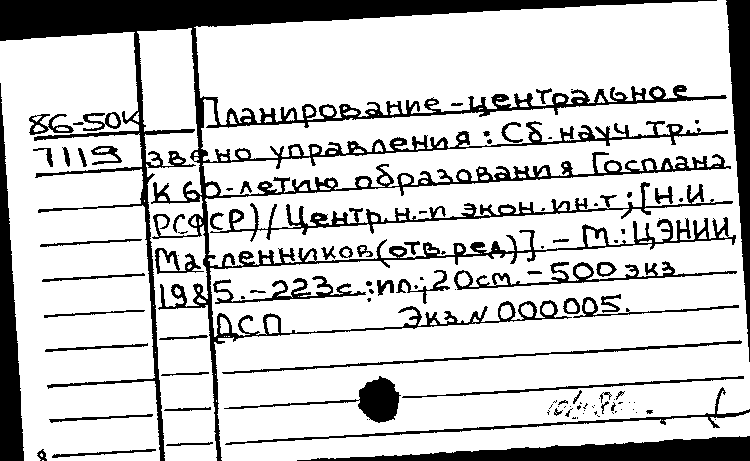 86-50К Планирование-центральное
7119 звено управления: Сб. науч. тр.:
(к 60-летию образования Госплана
РСФСР)/Центр. н.-и. экон. ин-т; [Н.И.
Масленников(отв. ред)]. - М.: ЦЭНИИ,
1985. - 223с.: ил.; 20см. - 500 экз
ДСП. Экз. N 000005.